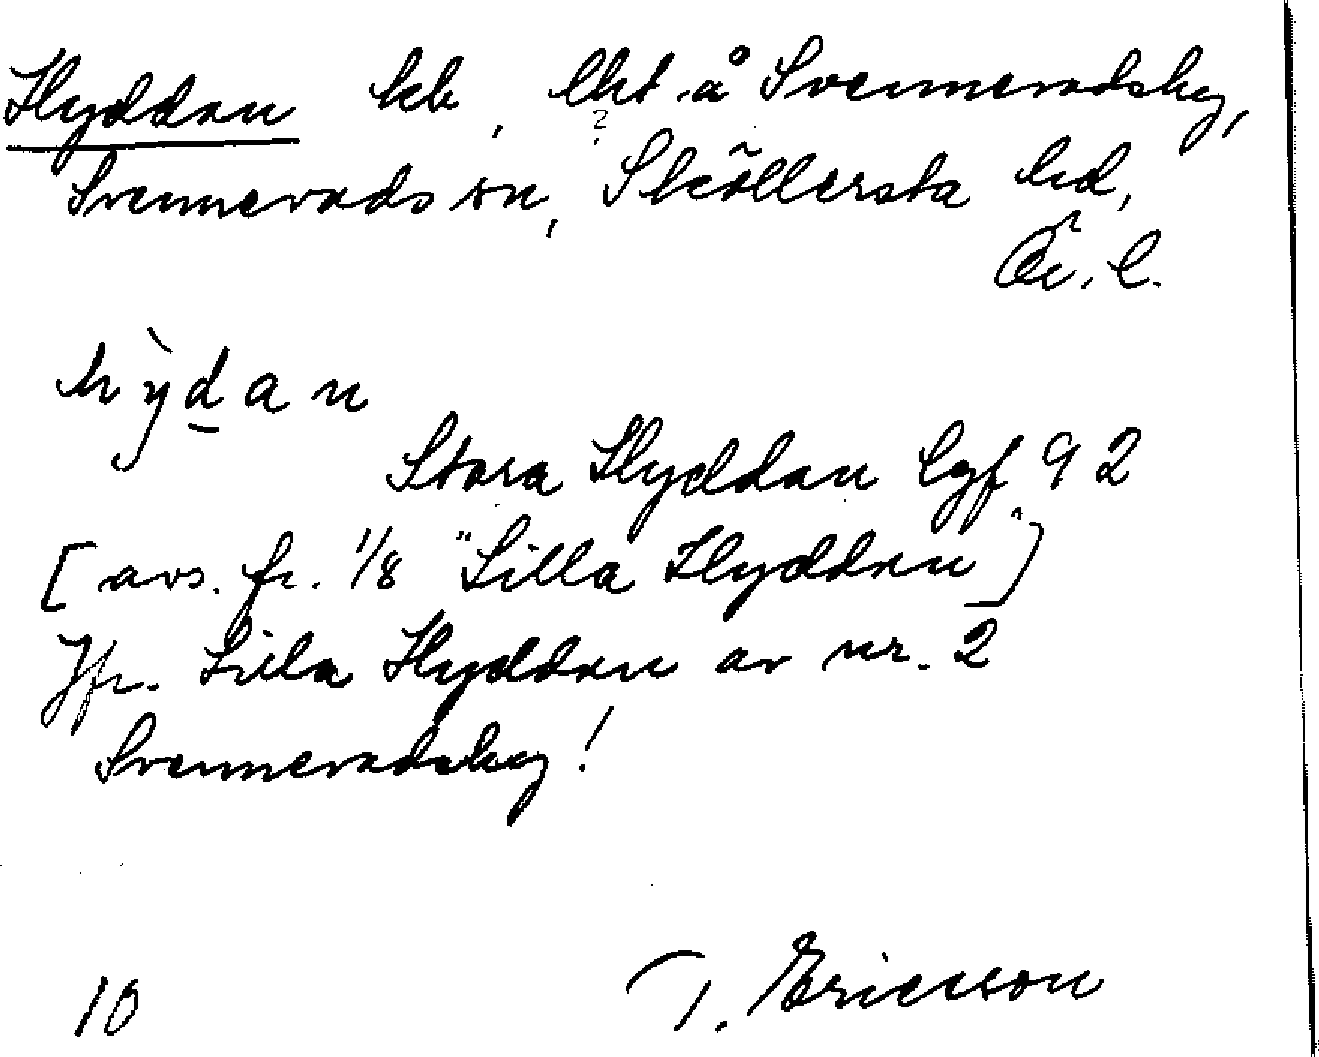 Hyddan lht å Svennevadsby,
?
Svennevads sn, Sköllersta hd,
Ör. l.
hỳdan
Stora Hyddan lgf 92
[avs. fr. 1/8 "Lilla Hyddan"]
Jfr. Lilla Hyddan av nr. 2
Svennevadsby!
10 T. Ericsson